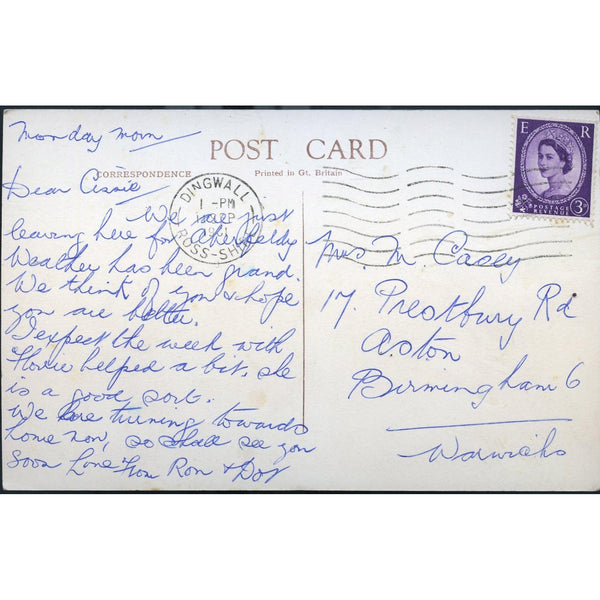 Monday morn
POST CARD
CORRESPONDENCE
Printed in Gt. Britain
E R
POSTAGE
REVENUE
3D
DINGWALL
1 - PM
SEP
ROSS-SHIRE
Dear Cissie
We are just
leaving here for Aberfeldy
Weather has been grand.
We think of you & hope
you are better.
I expect the week with
helped a bit, she
is a good sort.
We are turning towards
home now, so shall see you
soon Love from Ron & Dot
Mrs. M Casey
17, Prestbury Rd
Aston
Birmingham 6
Warwicks